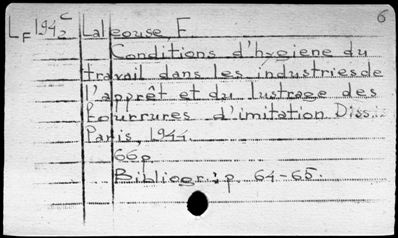 6
L_F 194 2 C Laleouse, F
Conditions d'hygiene du
travail dans les industries de
l'apprêt et du lustrage des
Fourrures d'imitation Diss...
Paris, 1944.
66p
Bibliogr: p. 64-65.